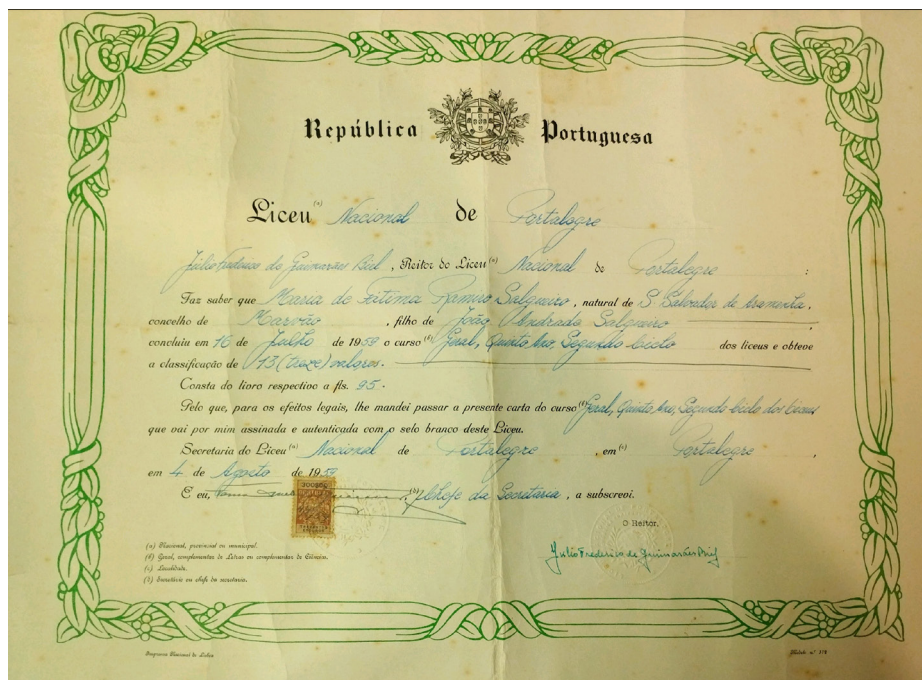 República Portuguesa
Liceu (a) Nacional de Portalegre
Júlio Frederico de Guimarães , Reitor do Liceu (a) Nacional de Portalegre :
Faz saber que Maria de Fátima Ramiro Salgueiro , natural de S. Salvador de Aramenha,
concelho de Marvão , filho de João Andrade Salgueiro
concluiu em 16 de Julho de 1959 o curso (b) Geral, Quinto Ano, Segundo Ciclo dos liceus e obteve
a classificação de 13 (treze) valores.
Consta do livro respectivo a fls. 95.
Pelo que, para os efeitos legais, lhe mandei passar a presente carta do curso (b) Geral, Quinto Ano, Segundo Ciclo dos Liceus
que vai por mim assinada e autenticada com o selo branco deste Liceu.
Secretaria do Liceu (a) Nacional de Portalegre , em (c) Portalegre
em 4 de Agosto de 1959
E eu, , (d) Chefe da Secretaria , a subscrevi.
O Reitor,
Júlio Frederico de Guimarães
(a) Nacional, provincial ou municipal.
(b) Geral, complementar de Letras ou complementar de Ciências.
(c) Localidade.
(d) Secretário ou chefe da secretaria.
Imprensa Nacional de Lisboa